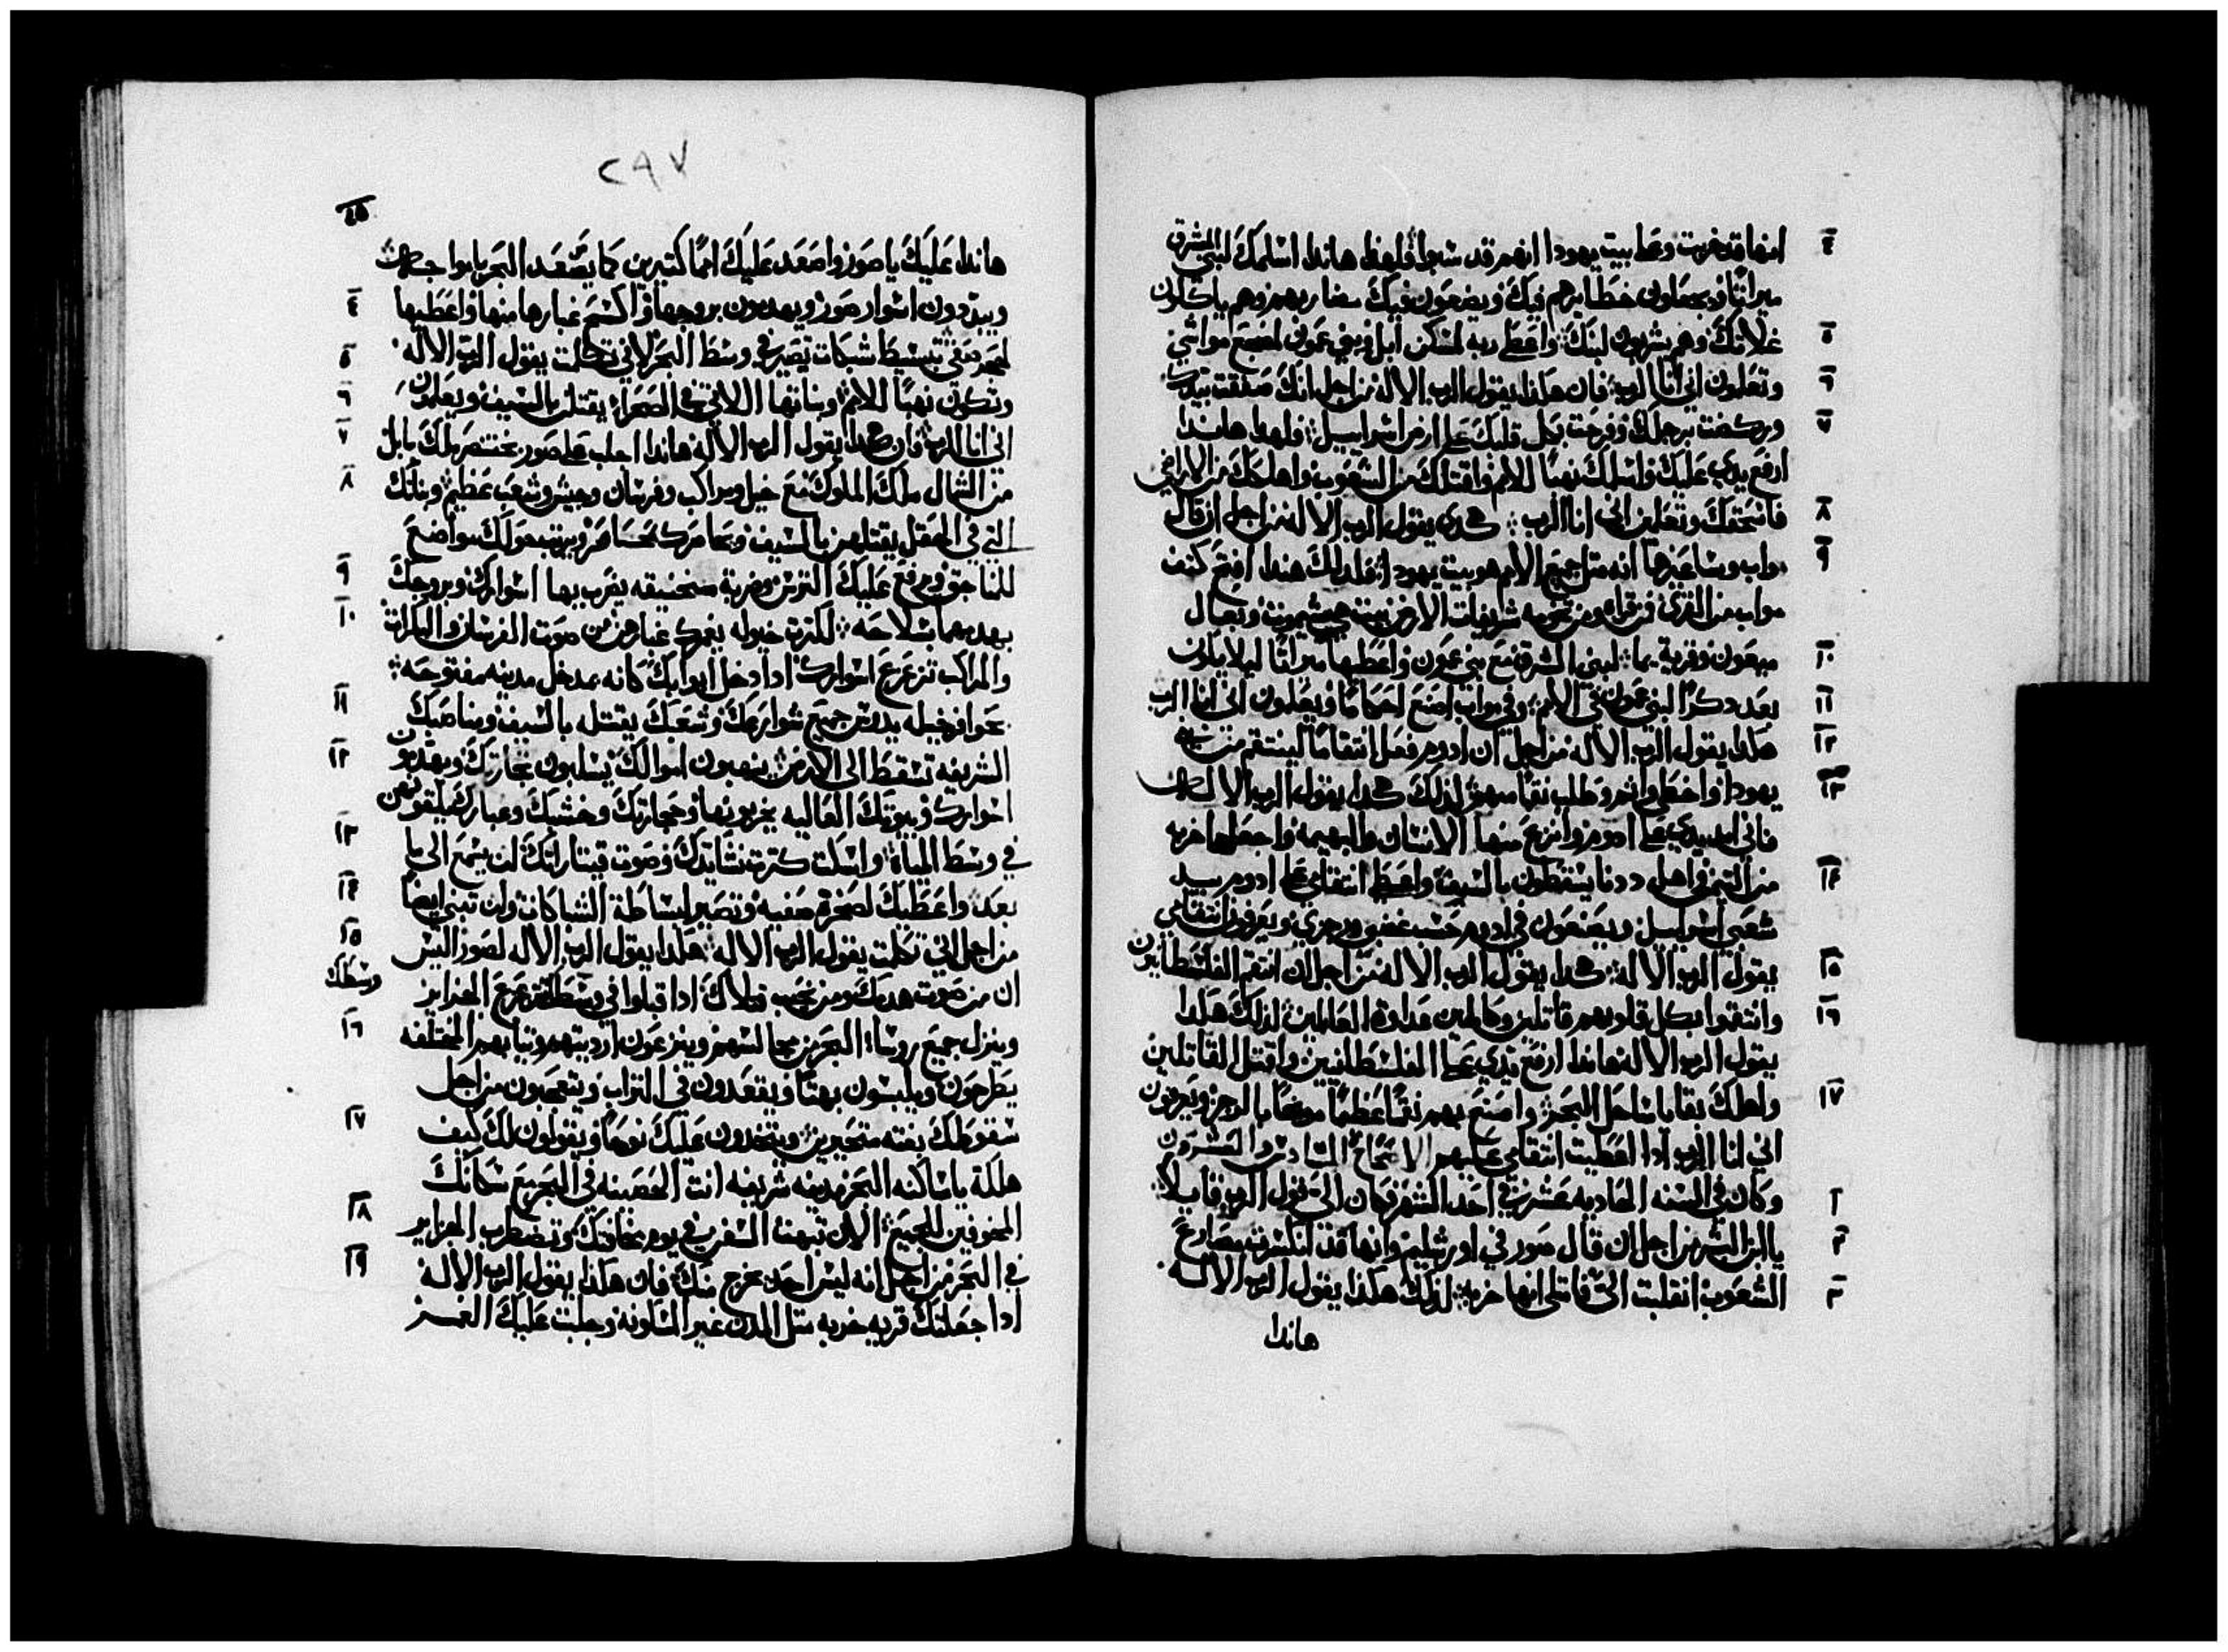 ٤ انها قد خربت وعلى بيت يهودا انهم قد سبوا فلهذا هاندا اسلمك لبني المشرق
ميراثا ويجعلون حظايرهم فيك ويضعون فيك مضاربهم وهم ياكلون
٥ غلاتك وهم يشربون لبنك واعطي ربه لمسكن ابل وبني عمون لمضجع مواشي
٦ وتعلمون اني انا الرب فان هكذا يقول الرب الاله من اجل انك صفقت بيدك
٧ وركضت برجلك وفرحت بكل قلبك على ارض اسراييل فلهذا هاندا
ارفع يدي عليك واسلمك نهبا للامم واقتلك من الشعوب واهلكك من الاراضي
٨ فاسحقك وتعلم اني انا الرب هكدى يقول الرب الاله من اجل ان قال
٩ مواب وساعيرها انه مثل جميع الامم هو بيت يهودا فلدلك هندا افتح كتف
مواب من القرى من قراه ومن تخومه شريفات الارض بيت يشيموت وبعال
١٠ معون وقرية يما لبني المشرق مع بني عمون واعطيها ميراثا ليلا يكون
١١ بعد دكرا لبني عمون في الامم وفي مواب اصنع احكاما ويعلمون اني انا الرب
١٢ هكدا يقول الرب الاله من اجل ان ادوم فعل انتقاما لينتقم من بني
١٣ يهودا واخطى واثم وطلب نقما منهم لذلك هكدا يقول الرب الاله
فاني امد يدي على ادوم وانزع منها الانسان والبهيمه واجعلها خربه
١٤ من التيمن واهل ددنا يسقطون بالسيف واعطي انتقامي على ادوم بيد
شعبي اسراييل ويصنعون في ادوم حسب غضبي ورجزي ويعرفون انتقامي
١٥ يقول الرب الاله هكدا يقول الرب الاله من اجل ان انتقم الفلسطانيون
١٦ وانتقموا بكل قلوبهم قاتلين وكاملين عداوة العالمين لذلك هكدا
يقول الرب الاله هاندا ارفع يدي على الفلسطانيين واقتل المقاتلين
١٧ واهلك بقايا ساحل البحر واصنع بهم نقما عظيما موبخا بالرجز ويعرفون
اني انا الرب ادا اعطيت انتقامي عليهم الاصحاح السادس والعشرون
١ وكان في السنه الحاديه عشر في احد الشهر كان الي قول الرب قايلا
٢ يا ابن البشر من اجل ان قال صور في اورشليم وانها قد انكسرت مصارع
٣ الشعوب انقلبت الي فامتلي انها خربه لذلك هكذا يقول الرب الاله
هاندا
٢٩٧
هاندا عليك يا صور واصعد عليك امما كتيرين كما يصعد البحر بامواجه
٤ ويبددون اسوار صور ويهدمون بروجها واكشم غبارها منها واعطيها
٥ لصخر صفي تبسيط شبكات تصير في وسط البحر لاني تكلمت يقول الرب الاله
٦ وتكون نهبا للامم وبناتها اللاتي في الصحراء يقتلن بالسيف ويعلمون
٧ اني انا الرب فان هكدا يقول الرب الاله هاندا اجلب على صور بختنصر ملك بابل
٨ من الشمال ملك الملوك مع خيل ومراكب وفرسان وجيش وشعب عظيم وبناتك
التي في الحقل يقتلهن بالسيف ويحاصرك بمحاصر ويرتب حولك مواضع
٩ للمناجق ويرفع عليك الترس وضربة منجنيقه يضرب بها اسوارك وبروجك
١٠ يهدمها بسلاحه لكترت خيوله يغمرك غبارهن من صوت الفرسان والبكرات
والمراكب تزعزع اسوارك ادا دخل ابوابك كانه بمدخل مدينه مفتوحه
١١ بحوافر خيله يدوس جميع شوارعك وشعبك يقتله بالسيف ومناصبك
١٢ الشريفه تسقط الى الارض ينهبون اموالك يسلبون تجارتك ويهدمون
اسوارك وبيوتك العاليه يخربونها وحجارتك وخشبك وغبارك يلقونهن
١٣ في وسط المياه واسكت كترت نشايدك وصوت قيتاراتك لن يسمع الى ما
١٤ بعد واعطيك لصخرة صفيه وتصير لبساطة الشباكات ولن تبني ايضا
١٥ من اجل اني تكلمت يقول الرب الاله هكدا يقول الرب الاله لصور اليس
ان من صوت هدمك ومن نحيب قتلاك ادا قبلوا في وسطك تتزعزع الجزاير
وسطك
١٦ وينزل جميع روساء البحر من مجالسهم وينزعون ارديتهم وتيابهم المختلفه
يطرحون ويلبسون بهتا ويقعدون في التراب ويتعجبون من اجل
١٧ سقوطك بغته متحيرين ويتخدون عليك نوحا ويقولون لك كيف
هلكة يا ساكنه البحر مدينه شريفه انت الحصينه في البحر مع سكانك
١٨ المخوفين الجميع الان تبهت السفن في يوم مخافتك وتضطرب الجزاير
١٩ في البحر من اجل انه ليس احد يخرج منك فان هكذا يقول الرب الاله
ادا جعلتك قريه خربه متل المدن غير المسكونه وجلبت عليك الغمر